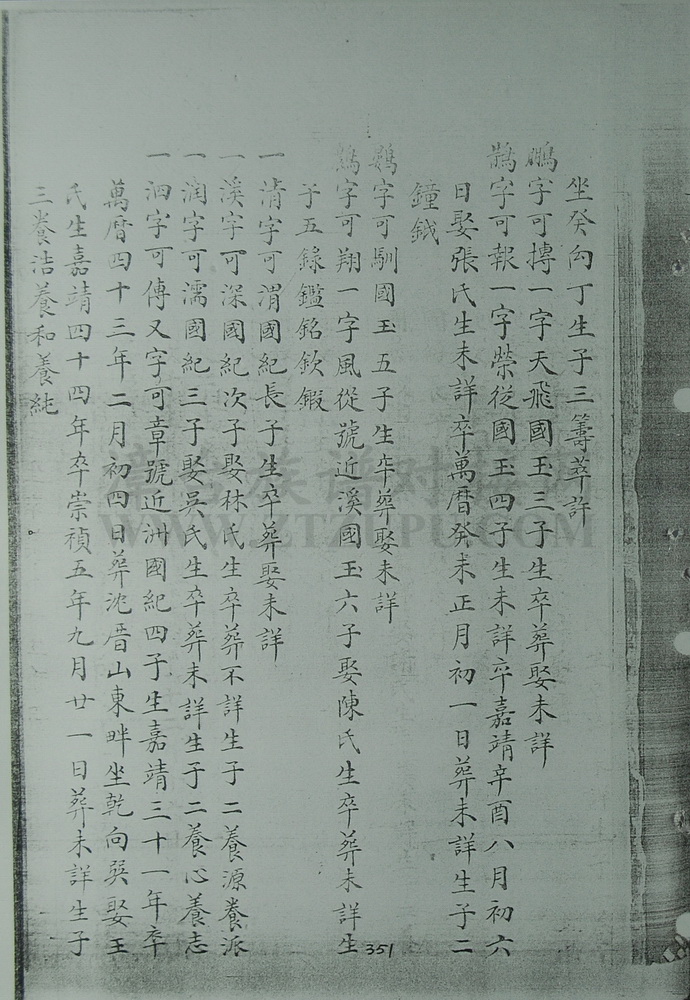 坐癸向丁生子三籌萃許
鵬字可摶一字天飛國玉三子生卒葬娶未詳
鵲字可報一字榮從國玉四子生未詳卒嘉靖辛酉八月初六
日娶張氏生未詳卒萬曆癸未正月初一日葬未詳生子二
鐘鉞
鷄字可馴國玉五子生卒葬娶未詳
字可翔一字風從號近溪國玉六子娶陳氏生卒葬未詳生
子五錄鑑銘欽鍜
一清字可渭國紀長子生卒葬娶未詳
一溪字可深國紀次子娶林氏生卒葬不詳生子二養源養派
一潤字可濡國紀三子娶吳氏生卒葬未詳生子二養心養志
一泗字可傳又字可章號近洲國紀四子生嘉靖三十一年卒
萬曆四十三年二月初四日葬沈厝山東畔坐乾向巽娶王
氏生嘉靖四十四年卒崇禎五年九月廿一日葬未詳生子
三養浩養和養純
351
WWW.ZTZUPU.COM